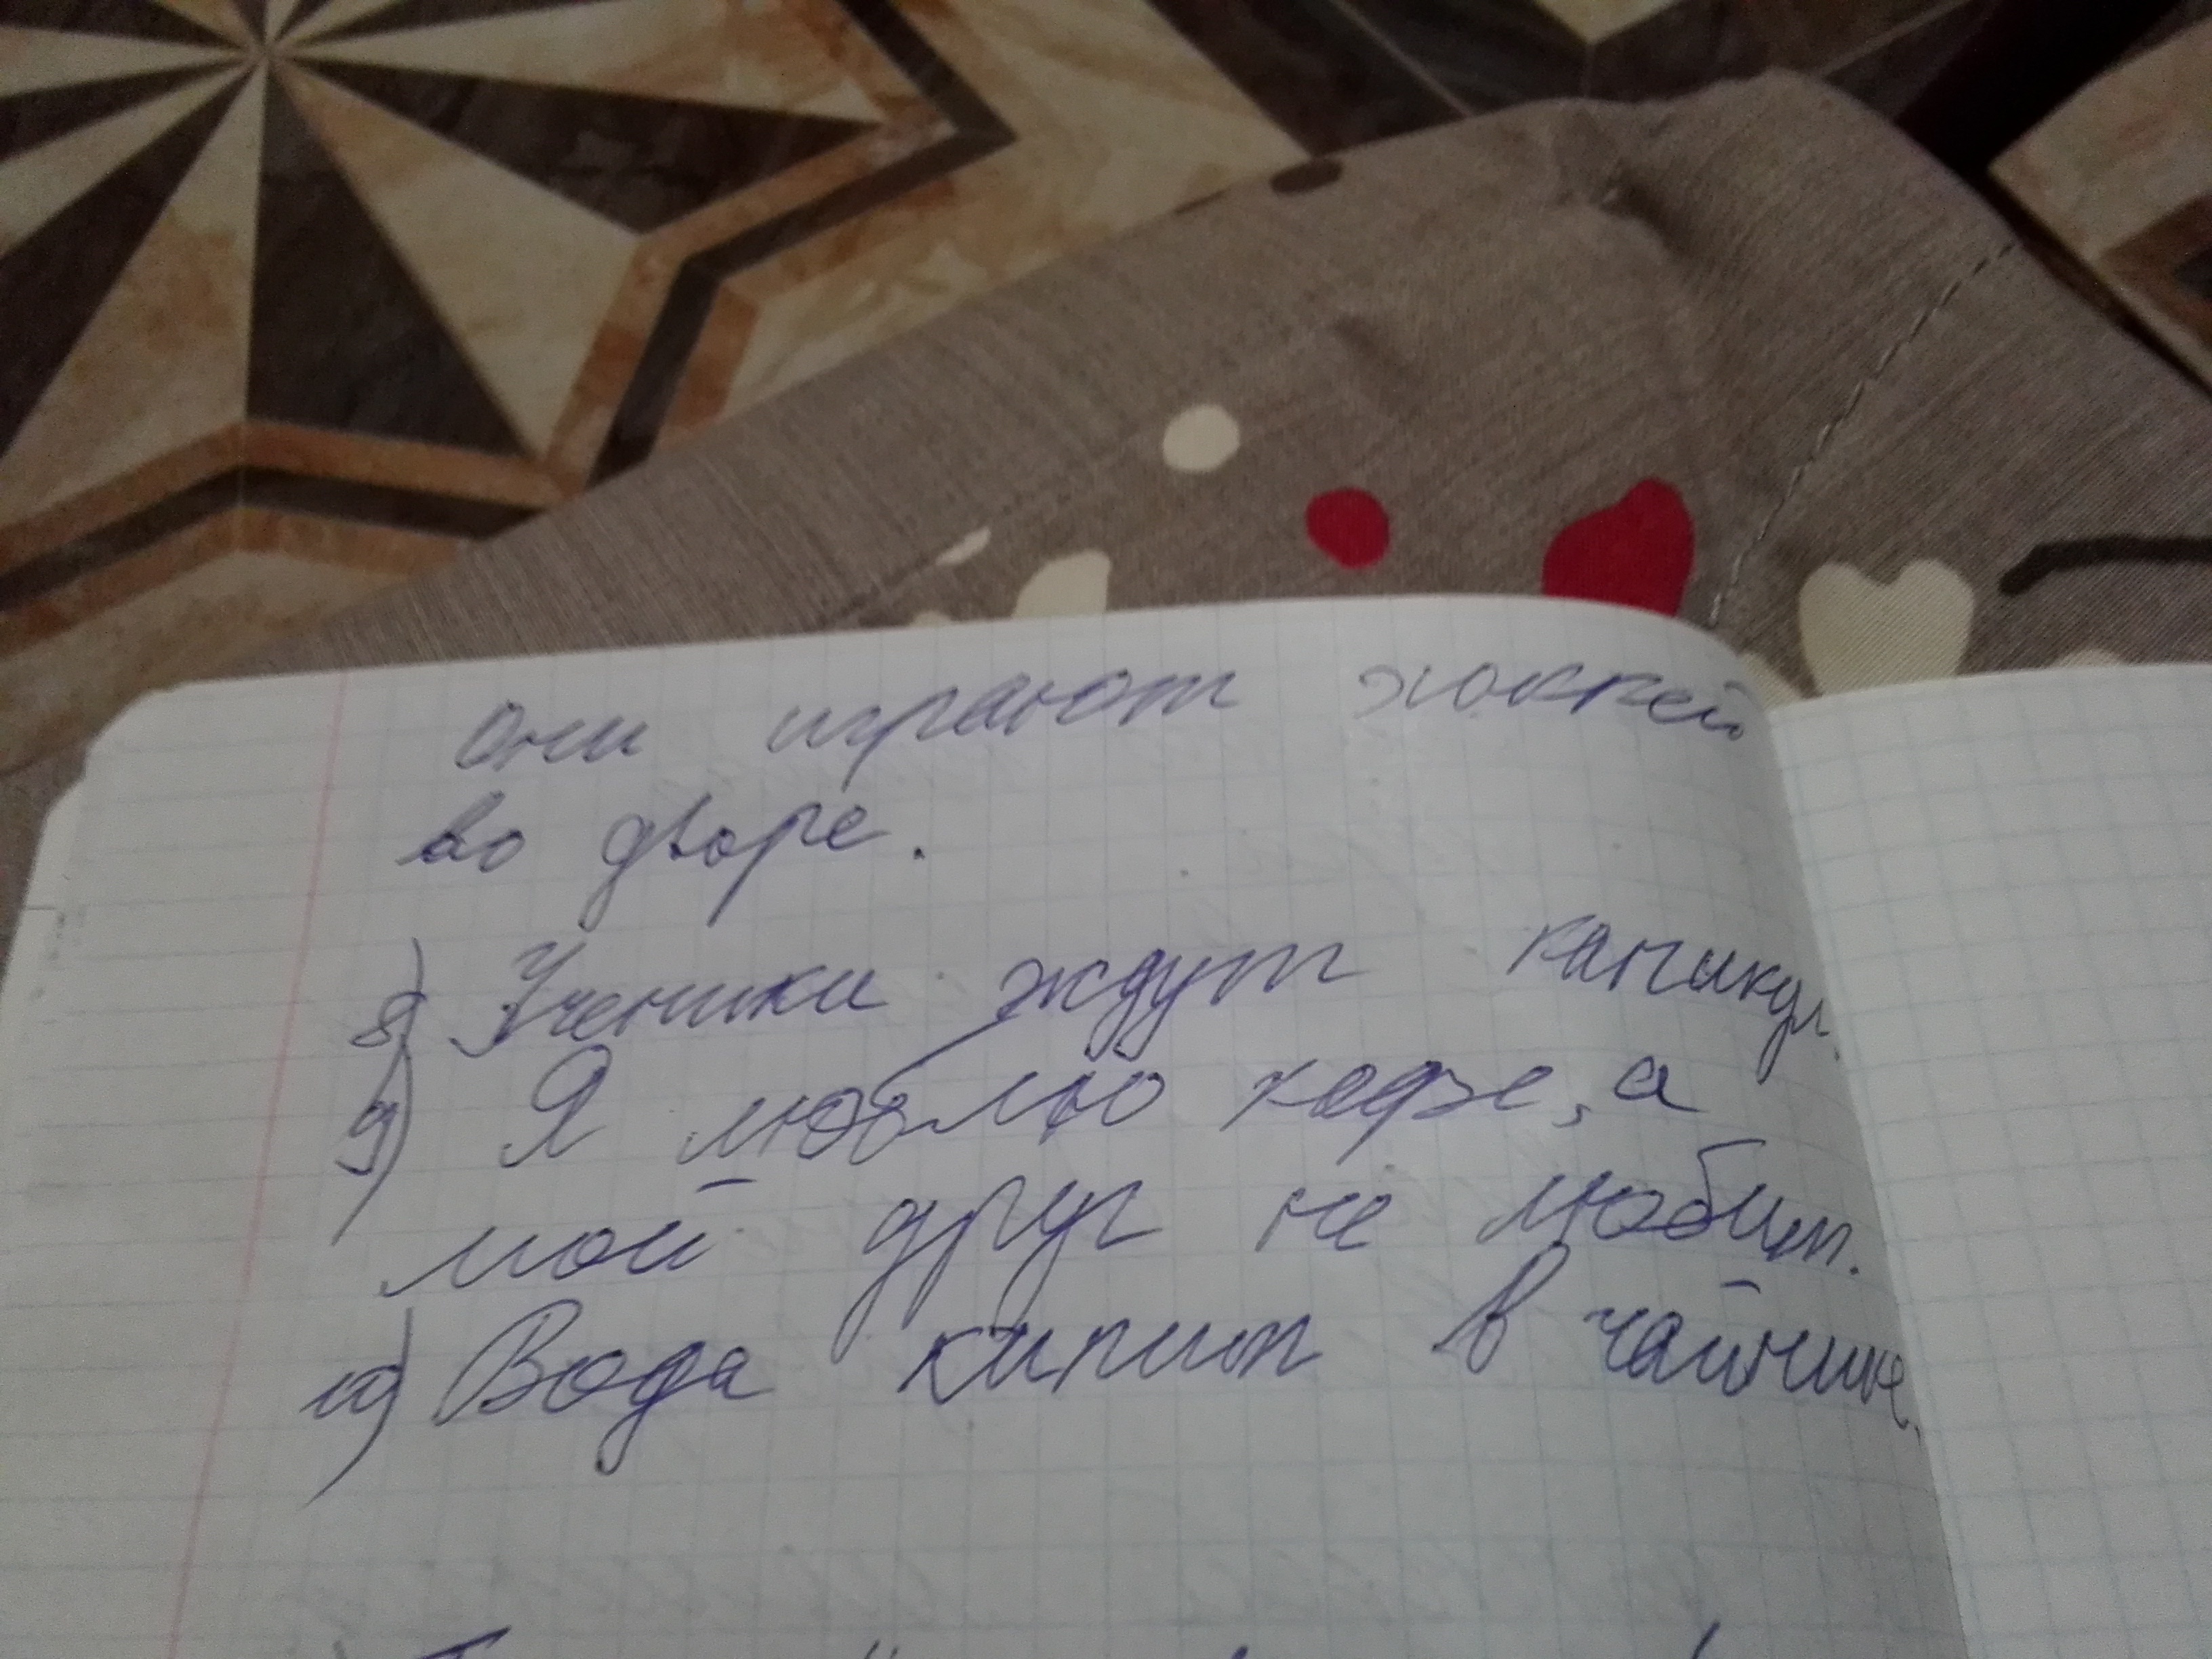 они играют хоккей
во дворе.
8) Ученики ждут каникул.
9) Я люблю кофе, а
мой друг не любит.
10) Вода кипит в чайнике.